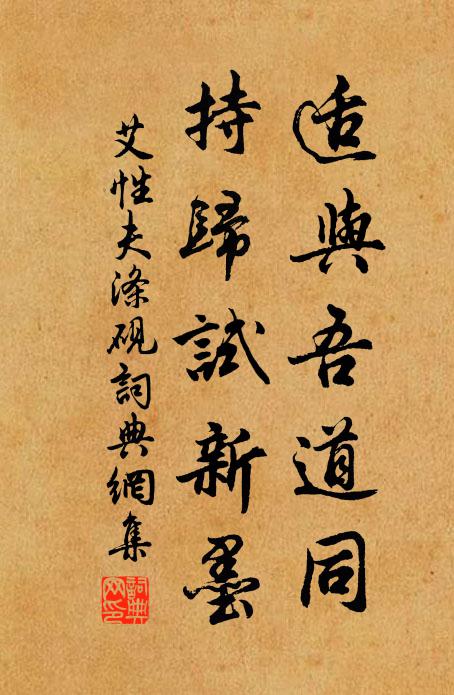 适與吾道同
持歸試新墨
艾性夫滌硯詞典網集
詞典
網印